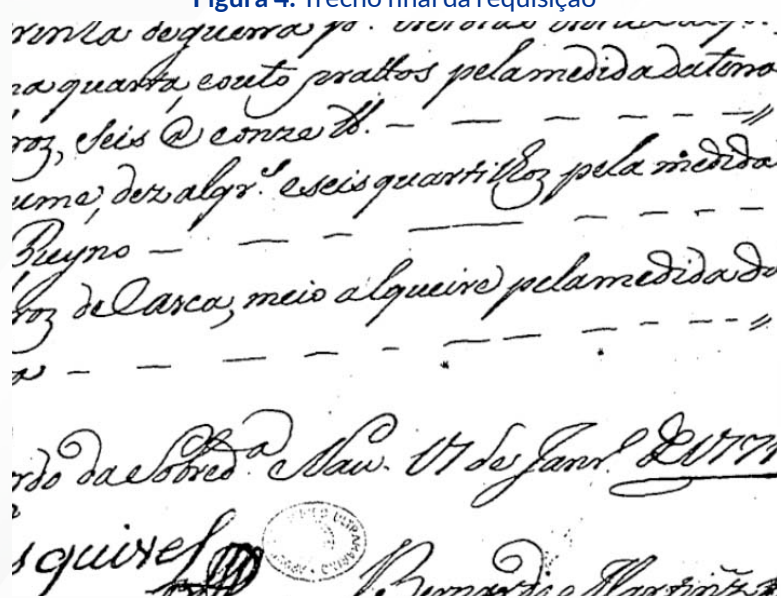 Figura 4. Trecho final da requisição
de guerra
quarta, e outo prattos pela medida da terra
roz, Seis @ e onze lb.
ume, dez algr.s e seis quartilhoz pela medida
Reyno
roz de Casca, meio alqueire pela medida da
da Sobred.a Nau. 17 de Janr.o de 177
squivel
Bernardo Martinz